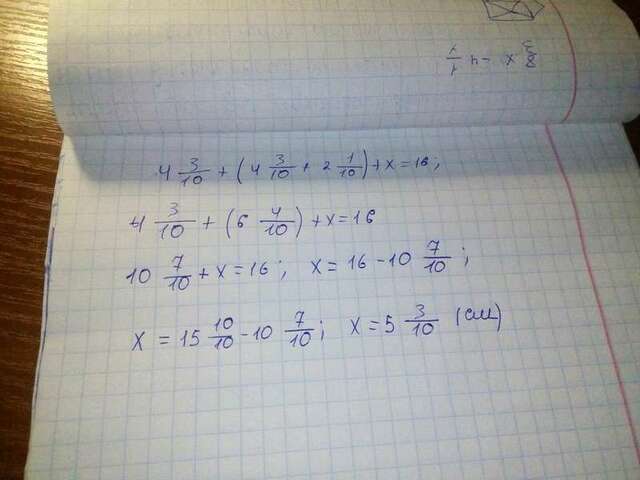 4 3/10 + (4 3/10 + 2 1/10) + x = 16;
4 3/10 + (6 4/10) + x = 16
10 7/10 + x = 16; x = 16 - 10 7/10;
x = 15 10/10 - 10 7/10; x = 5 3/10 (см)